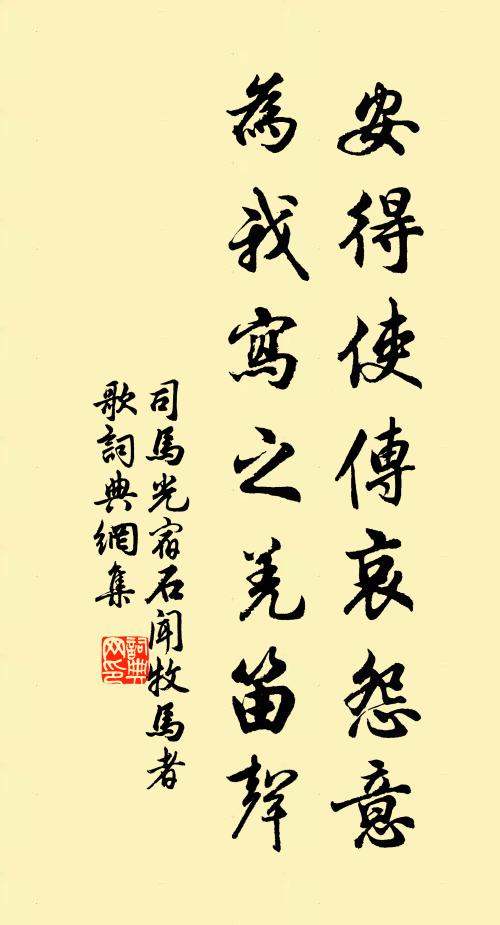 安得使傳哀怨意
為我寫之羌笛聲
司馬光宿石聞牧馬者
歌詞典網集
詞典
网印